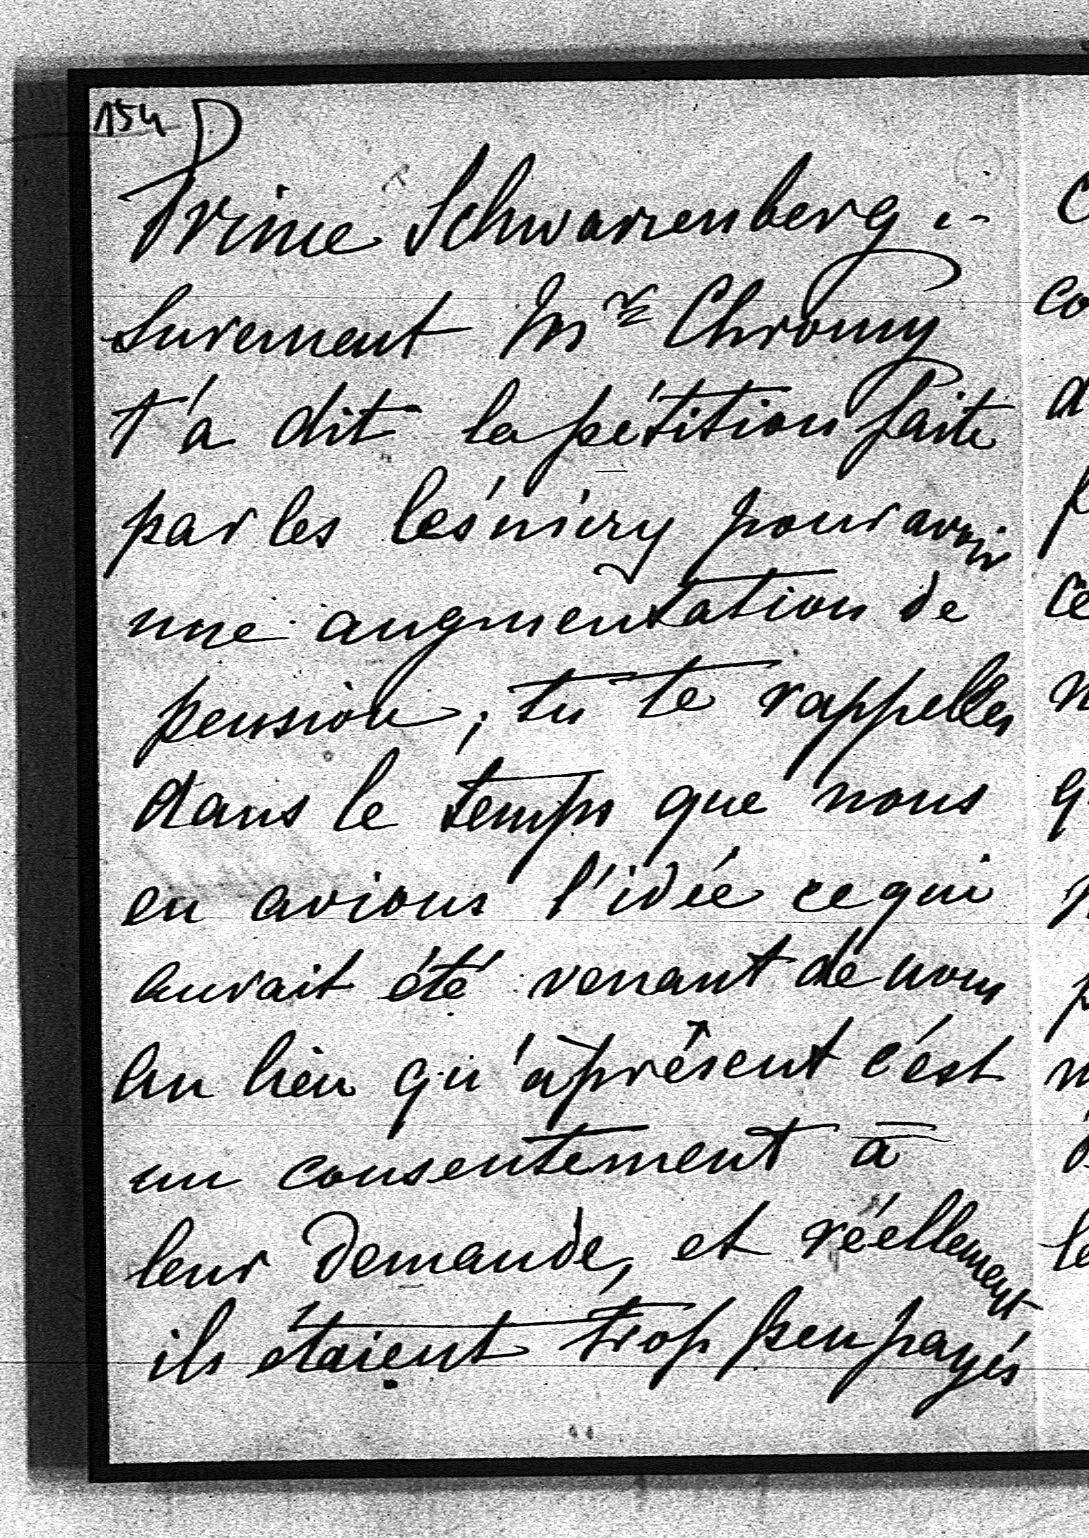 154
Prince Schwarzenberg ;-
surement Mr Chromy
t'a dit la pétition faite
par les lesńiczy pour avoir
une augmentation de
pension, tu te rappelles
dans le temps que nous
en avions l'idée ce qui
aurait été venant de nous
au lieu qu'àprêsent c'est
un consentement à
leur demande, et réellement
ils étaient trop peu payés